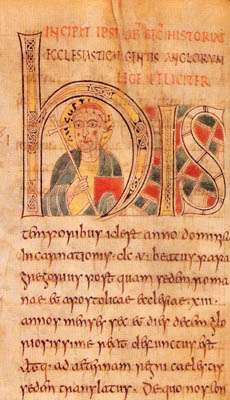 INCIPIT IPSIUS HISTORIAE
ECCLESIASTICAE GENTIS ANGLORUM
FELICITER
hIS
temporibus id est anno domini
Incarnationis dc v beatus papa
gregorius post quam sedem roma
nae & apostolicae ecclesiae xiii
annos menses sex & dies decem glo
riosissime rexit defunctus est
atq· ad aeternam regni caelestis
sedem translatus. De quo nos con